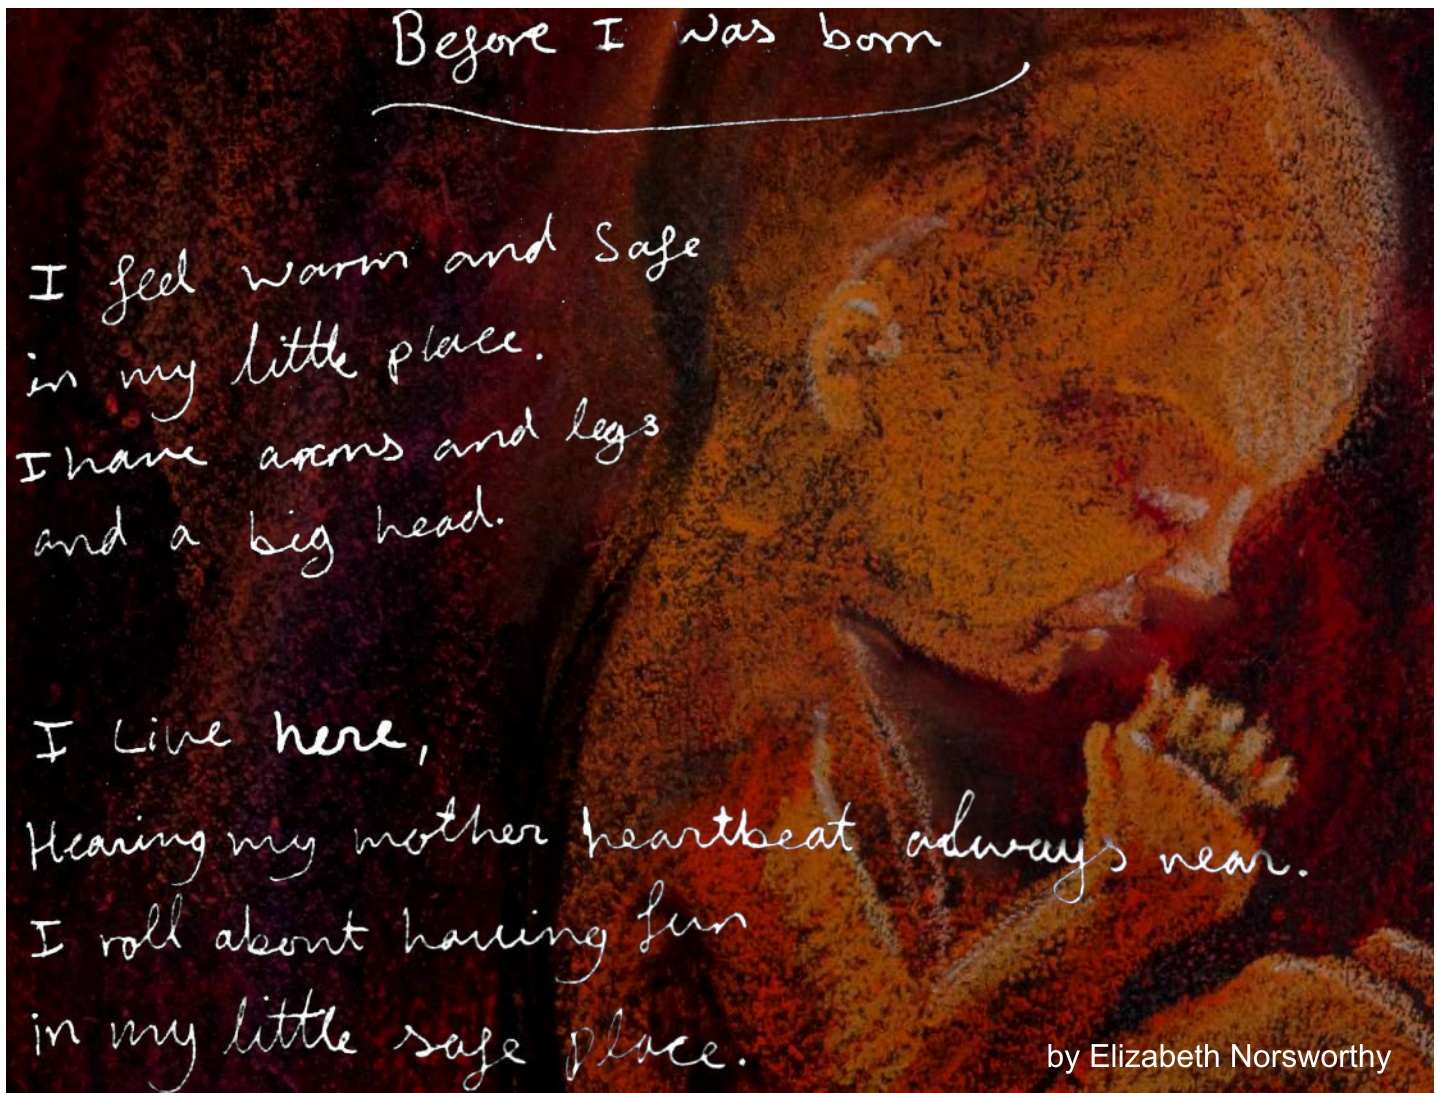 Before I was born
I feel warm and safe
in my little place.
I have arms and legs
and a big head.
I live here,
Hearing my mother heartbeat always near.
I roll about having fun
in my little safe place.
by Elizabeth Norsworthy